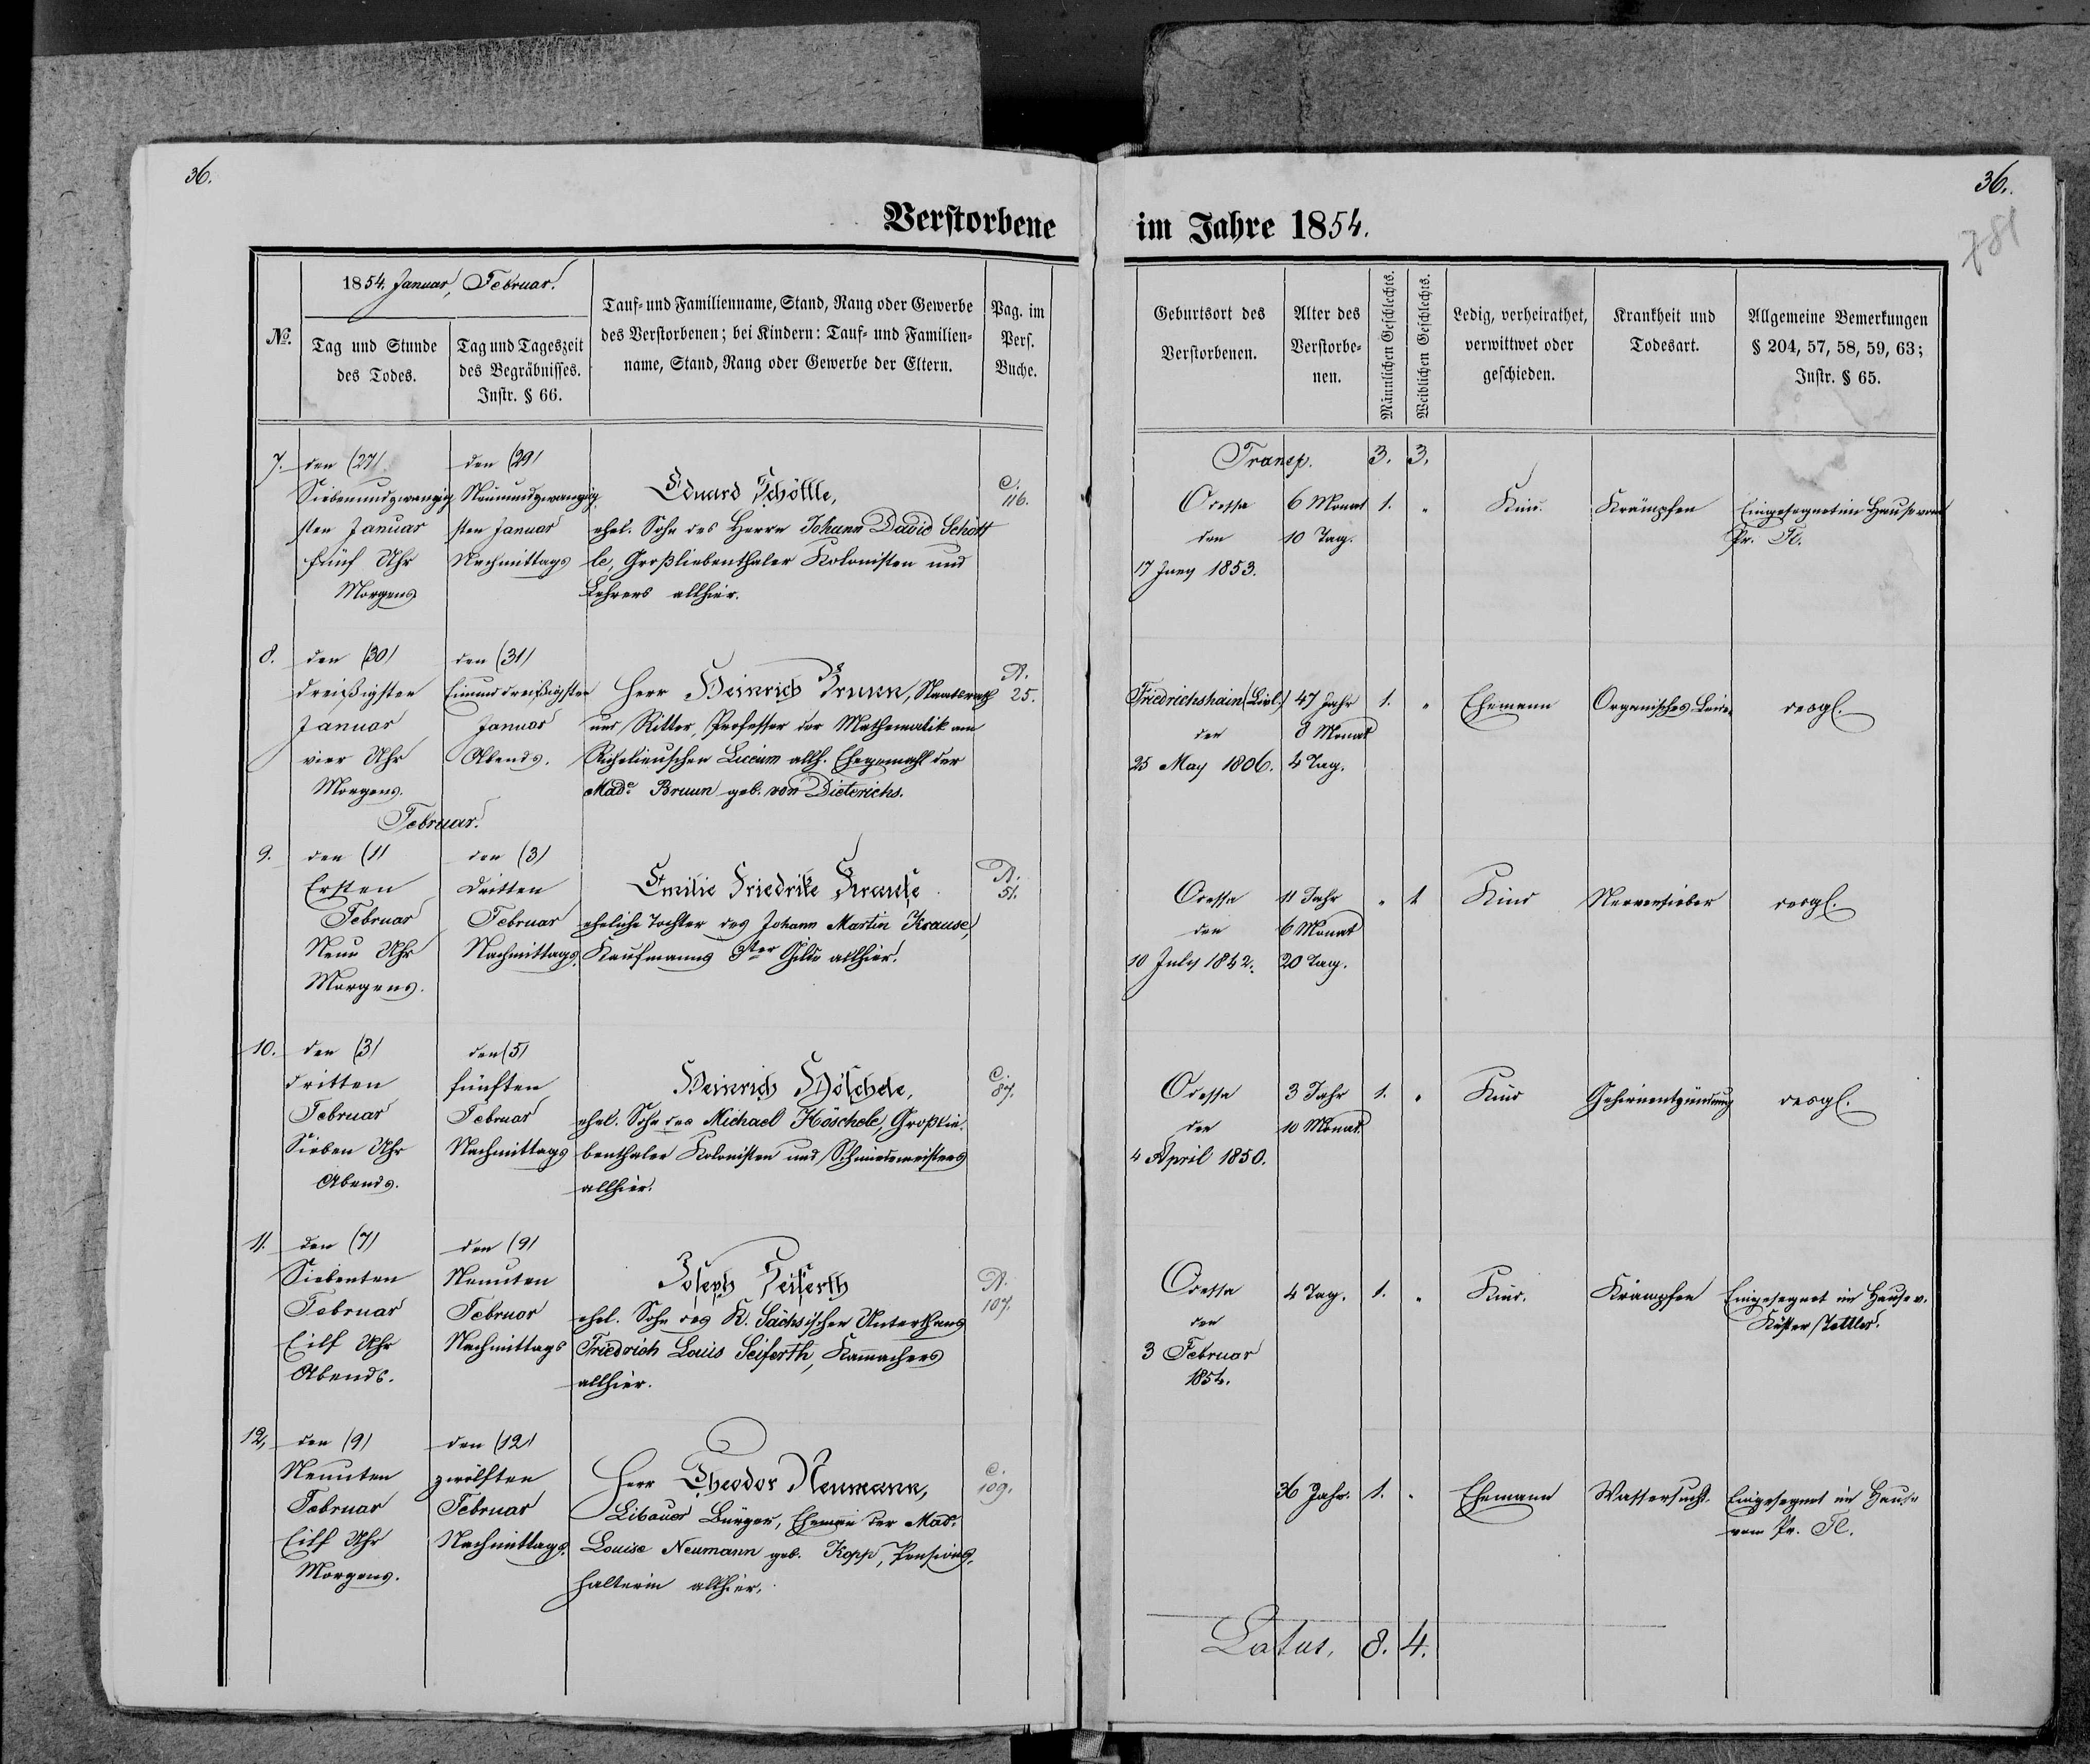 36.
36.
781
Verstorbene im Jahre 1854.
No.
1854. Januar, Februar.
Tag und Stunde
des Todes.
Tag und Tageszeit
des Begräbnisses.
Instr. § 66.
Tauf- und Familienname, Stand, Rang oder Gewerbe
des Verstorbenen; bei Kindern: Tauf- und Familien-
name, Stand, Rang oder Gewerbe der Eltern.
Pag. im
Pers.
Buche.
Geburtsort des
Verstorbenen.
Alter des
Verstorbe-
nen.
Männlichen Geschlechts.
Weiblichen Geschlechts.
Ledig, verheirathet,
verwittwet oder
geschieden.
Krankheit und
Todesart.
Allgemeine Bemerkungen
§ 204, 57, 58, 59, 63;
Instr. § 65.
Transp. 3. 3.
7.
den (27)
Siebenundzwanzig
sten Januar
fünf Uhr
Morgens
den (29)
Neunundzwanzig
sten Januar
Nachmittags
Eduard Schöttle,
ehel. Sohn des Herrn Johann David Schött
le, Großliebenthaler Kolonisten und
Lehrers allhier.
C.
116.
Odessa
den
17 Juny 1853.
6 Monat
10 Tag.
1. "
Kind.
Krämpfen
Eingesegnet im Hause vom
Pr. Fl.
8.
den (30)
dreißigsten
Januar
vier Uhr
Morgens.
den (31)
Einunddreißigsten
Januar
Abends.
Herr Heinrich Bruun, Staatsrath
und Ritter, Professor der Mathematik am
Richelieuschen Liceum allh. Ehegemahl der
Made Bruun geb. von Dieterichs.
A.
25.
Friedrichshain (Livl.)
den
25 May 1806.
47 Jahr
8 Monat
4 Tag.
1. "
Ehemann
Organisches Leiden
desgl.
Februar.
9.
den (1)
Ersten
Februar
Neun Uhr
Morgens.
den (3)
Dritten
Februar
Nachmittags.
Emilie Friedrike Krause
eheliche Tochter des Johann Martin Krause,
Kaufmanns 3ter Gilde allhier.
A.
51.
Odessa
den
10 July 1842.
11 Jahr
6 Monat
20 Tag.
" 1
Kind
Nervenfieber
desgl.
10.
den (3)
dritten
Februar
Sieben Uhr
Abends.
den (5)
fünften
Februar
Nachmittags
Heinrich Höschele,
ehel. Sohn des Michael Höschele, Großlie-
benthaler Kolonisten und Schmiedemeisters
allhier.
C.
87.
Odessa
den
4 April 1850.
3 Jahr
10 Monat.
1. "
Kind
Gehirnentzündung
desgl.
11.
den (7)
Siebenten
Februar
Eilf Uhr
Abends.
den (9)
Neunten
Februar
Nachmittags
Joseph Seiferth
ehel. Sohn des K. Sächsischen Unterthans
Friedrich Louis Seiferth, Kammachers
allhier.
A.
107.
Odessa
den
3 Februar
1854.
4 Tag.
1. "
Kind.
Krämpfen
Eingesegnet im Hause v.
Küster
12.
den (9)
Neunten
Februar
Eilf Uhr
Morgens.
den (12)
zwölften
Februar
Nachmittags.
Herr Theodor Neumann,
Libauer Bürger, Ehemann der Made
Louise Neumann geb. Kopp, Pensions-
halterin allhier.
C.
109.
36 Jahr.
1. "
Ehemann
Wassersucht.
Eingesegnet im Hause
vom Pr. Fl.
Latus. 8. 4.